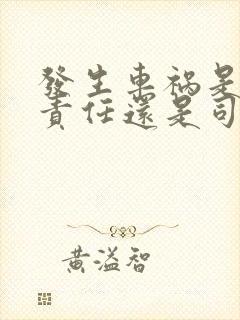 發生車禍是
責任還是司
黃溢智